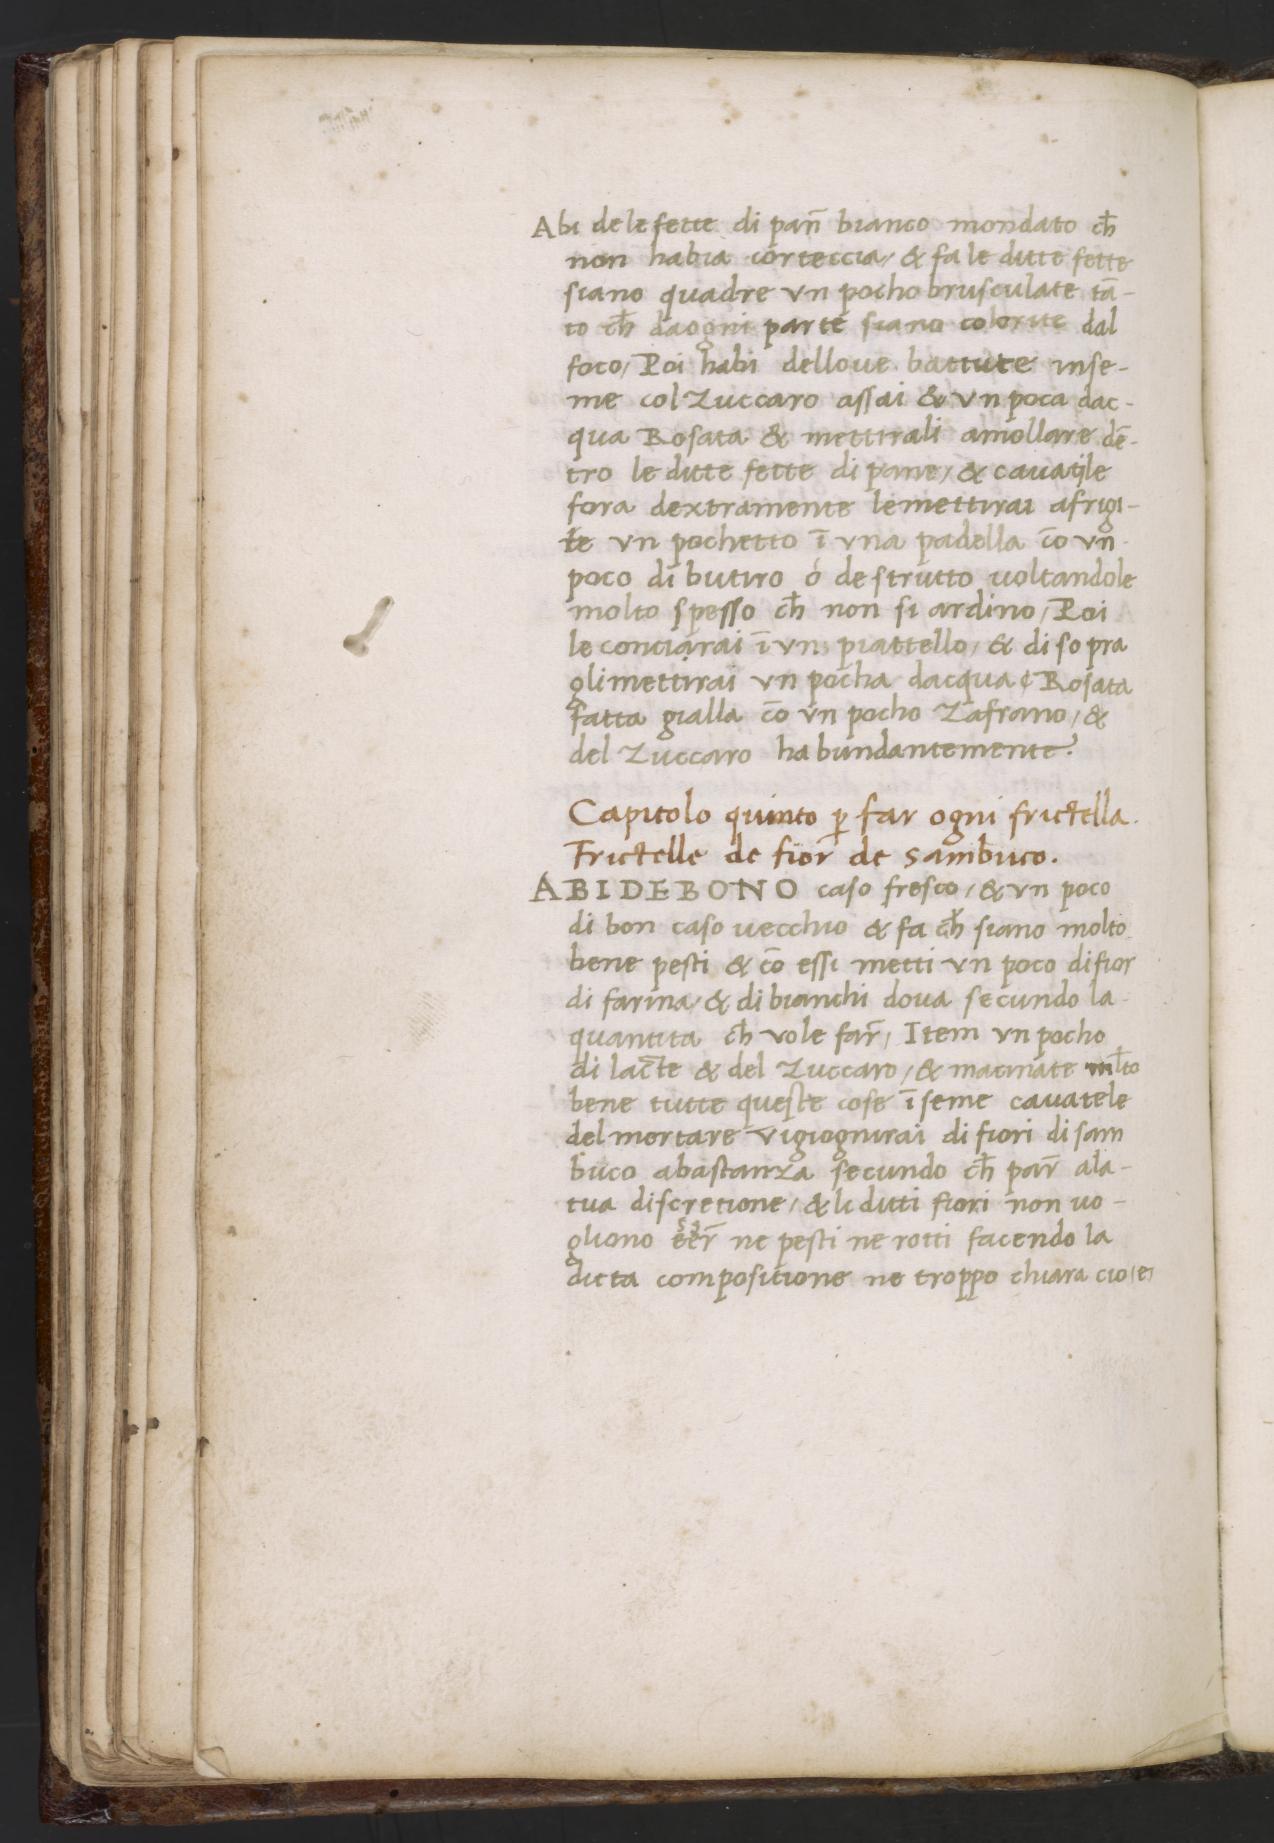 Abi de le fette di pan̄ bianco mondato ch̄
non habia corteccia / & fa le ditte fette
siano quadre vn pocho brusculate tā-
to ch̄ daogni parte siano colorite dal
foco / Poi habi dellove battute inse-
me col Zuccaro assai & vn poca dac-
qua Rosata & mettirali amollare dē-
tro le ditte fette di pane / & cavatile
fora dextramente le mettirai afrigi-
re vn pochetto ī vna padella cō vn
poco di butiro ó de strutto uoltandole
molto spesso ch̄ non si ardino / Poi
le conciarai ī vn piattello / & di sopra
gli mettirai vn pocha dacqua Rosata
fatta gialla cō vn pocho Zafrano / &
del Zuccaro habundantemente.
Capitolo quinto ꝑ far ogni frictella.
Frictelle de fior de sambuco.
ABI DE BONO caso fresco / & vn poco
di bon caso uecchio & fa ch̄ siano molto
bene pesti & cō essi metti vn poco di fior
di farina / & di bianchi doua secundo la
quantita ch̄ vole far̄ / Item vn pocho
di lacte & del Zuccaro / & macinate ml̄to
bene tutte queste cose īseme cauatele
del mortare vi giognirai di fiori di sam
buco abastanza secundo ch̄ par̄ ala
tua discretione / & li ditti fiori non uo-
gliono eer̄ ne pesti ne rotti facendo la
dicta compositione ne troppo chiara cio / e /